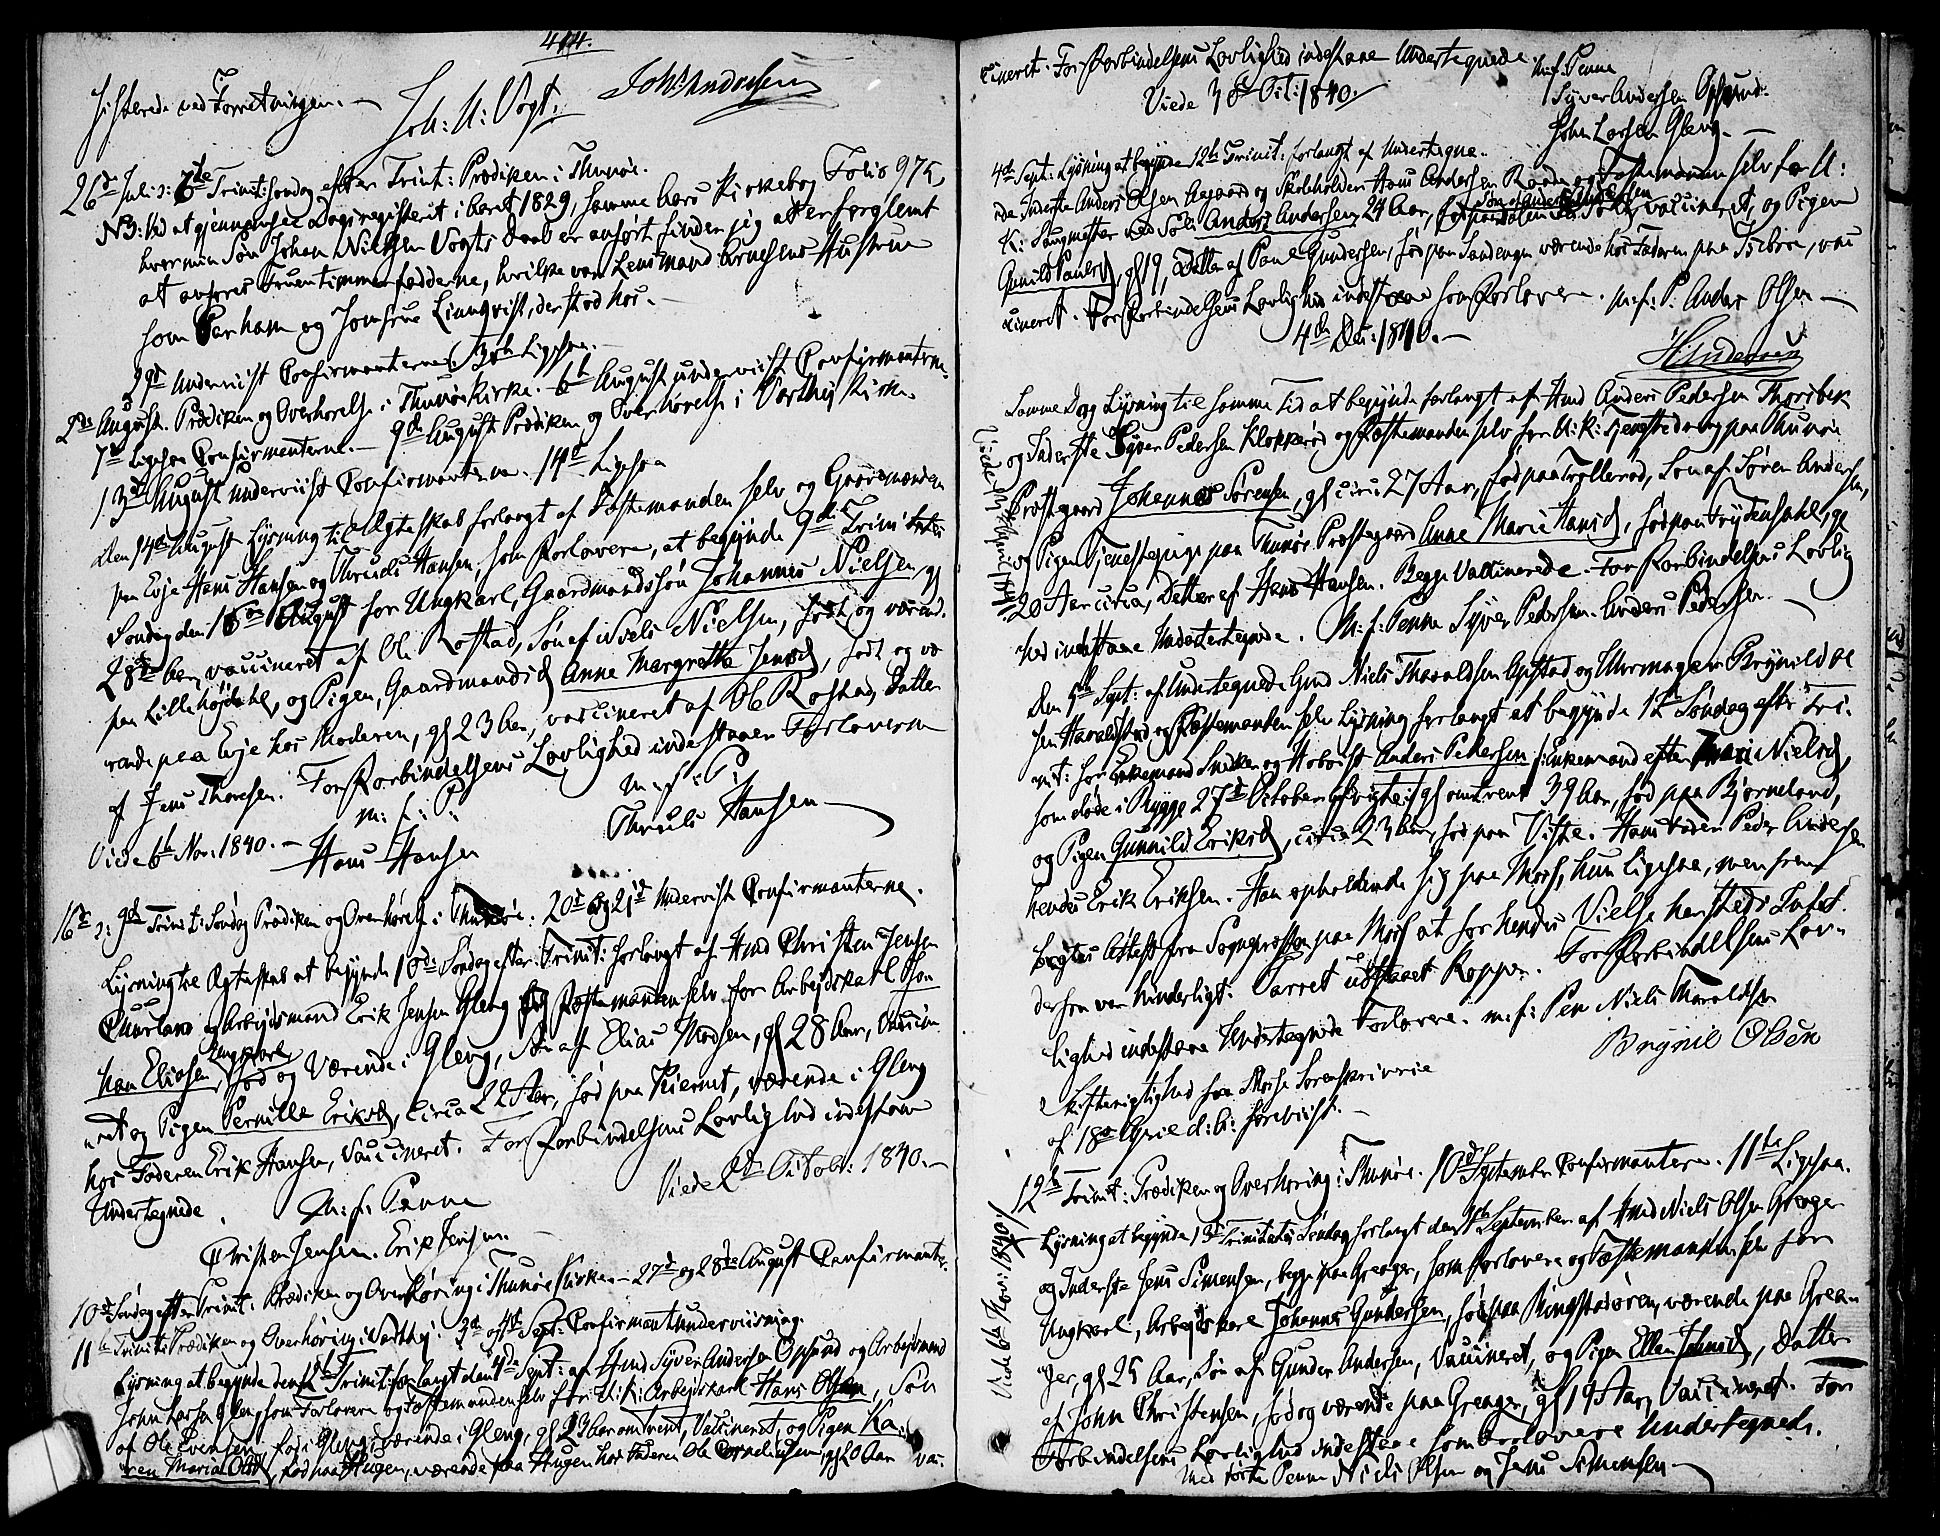 414.
Tilstæde ved Forretningen. —
Joh: N: Vogt.
Johs Andersen
26de Juli ɔ: 6te Trinit: Søndag efter Trinit: Prædiken i Thunøe.
NB: Ved at gjennemsee Dagsregisteret i Aaret 1829, samme Aars Kirkebog Folio 975,
hvor min Søn Johan Nielsen Vogts Daab er anført finder jeg at være forglemt
at anføres Fruentimmerfadderne, hvilke var Lensmand Arnesens Hustrue
som bar ham og Jomfrue Linnqvist, der stod hos. —
29de underviist Confirmanterne. 30te Ligesaa. —
2den August. Prædiken og Overhørelse i Thunøe Kirke. 6te August underviist Confirmanterne.
7de Ligesaa Confirmanterne. — 9de August Prædiken og Overhørelse i Varthej Kirke.
13de August underviist Confirmanterne. 14de Ligesaa
Den 14de August Lysning til Ægteskab forlangt af Fæstemanden selv og Gaardmændene
paa Evje Hans Hansen og Thruls Hansen, som Forlovere, at begynde 9de Trinitatis
Søndag den 16de August for Ungkarl, Gaardmandssøn Johannes Nielsen, gl
28de Aar, vaccineret af Ole Rostad, Søn af Niels Nielsen, født og værend.
paa Lillehøjdahl, og Pigen, Gaardmandsd Anne Margrethe Jensd, født og væ
rende paa Evje hos Moderen, gl 23 Aar, vaccineret af Ole Rostad, Datter
af Jens Thoresen. For Forbindelsens Lovlighed indestaaer Forloverne
Viede 6te Nov: 1840. —
m: f: P:
Hans Hansen
m: f: P:
Thruls Hansen —
16de ɔ: 9de Trinit: Søndag Prædiken og Overhørelse i Thunøe. 20de og 21de Underviist Confirmanterne.
Lysning til Ægteskab at begynde 10de Søndag efter Trinit: forlangt af Husmd Christen Jensen
Quurland og Arbejdsmand Erik Jensen Gleng og Fæstemanden selv for Arbejdskarl Johan
han Eliasen, Ungkarl, fød og Værende i Gleng, Søn af Elias Madsen, gl 28 Aar, Vaccine
ret og Pigen Pernille Eriksd, circa 22 Aar, fød paa Kiernet, værende i Gleng
hos Faderen Erik Hansen, Vaccineret. For Forbindelsens Lovlighed indestaae
Undertegnede.
m: f: Penne
Viede 2den October 1840. —
Christen Jensen. Erik Jensen. —
10de Søndag efter Trinit: Prædiken og Overhøring i Thunøe Kirke. — 27de og 28de August Confirmanter.
11te Trinit: Prædiken og Overhøring i Varthej. 3de og 4de Sept: Confirmantunderviisning.
Lysning at begynde den 12te Trinit: forlangt den 4de Sept: af Husmd Syver Andersen Opsund og Arbejdsmand
John Larsen Gleng som Forlovere og Fæstemanden selv for U: K: Arbejdskarl Hans Olsen, Søn
af Ole Evensen, fød i Gleng, værende i Gleng, gl 23 Aar omtrent, Vaccineret, og Pigen Ka-
ren Maria Olsd, fød paa Haugen, værende paa Haugen hos Faderen Ole Cornelius, gl 20 Aar vac-
cineret. For Forbindelsens Lovlighed indestaae Undertegnede.
Viede 30te Oct: 1840.
m: f: Penne
Syver Andersen Opsund.
John Larsen Gleng. —
4de Sept: Lysning at begynde 12te Trinit: forlangt af Undertegne-
de Inderste Anders Olsen Aagaard og Skoleholder Hans Andersen Raade og Fæstemanden selv for U:
K: Saugmester ved Soli Anders Andersen 24 Aar, vaccineret, og Pigen
Gunild Paulsd, gl 19, Datter af Paul Gundersen, fød paa Sandengen værende hos Faderen paa Isebroe, vac
cineret. For Forbindelsens Lovlighed indestaae som Forlovere. m: f: P: Anders Olsen —
4de Dec: 1840. —
HAndersen
Samme Dag Lysning til samme Tid at begynde forlangt af Husmd Anders Pedersen Thorsbek
og Inderste Syver Pedersen Klokkerød og Fæstemanden selv for U: K: Tjenestedreng paa Thunøe
Præstegaard Johannes Sørensen, gl circa 27 Aar, fød paa Trollerød, Søn af Søren Andersen,
og Pigen Tjenestepige paa Thunøe Præstegaard Anne Marie Hansd, fød paa Frydensdahl, gl
20 Aar circa, Datter af Hans Hansen. Begge Vaccinerede. For Forbindelsens Lovlig
hed indestaae Undertegnede. m: f: Penne Syver Pedersen. Anders Pedersen. —
Viede 13 April 1841.
Den 5te Sept: af Undertegnede Husmd Niels Tharaldsen Opstad og Uhrmager Brynild Ol
sen Haraldstad og Fæstemanden selv Lysning forlangt at begynde 12te Søndag efter Tri-
nit: for Enkemand Snedker og Hoboist Anders Pedersen, Enkemand efter Mari Nielsd,
som døde i Rygge 27de October gl omtrent 39 Aar, fød paa Bjørneland,
og Pigen Gunnild Eriksd, circa 23 Aar, fød paa Viste. Hans Fader Peder Andersen
hendes Erik Eriksen. Han opholdende sig paa Moss, hun Ligesaa, men frem
bragte Attest fra Sognepræsten paa Moss at for hendes Vielse hersteds Intet
derfra var hinderligt. Parret udstaaet Kopper. For Forbindelsens Lov-
lighed indestaae Undertegnede Forlovere. m: f: Pen Niels Tharaldsen
Brynil Olsen
Skifterigtighed fra Mosse Sorenskriverie
af 18de April d: A: foreviist. —
12te Trinit: Prædiken og Overhøring i Thunøe. 10de September Confirmanterne. 11te Ligesaa.
Lysning at begynde 13de Trinitatis Søndag forlangt den September af Husmd Niels Olsen Greager
og Inderste Jens Simensen, begge paa Greager, som Forlovere og Fæstemanden selv for
Ungkarl, Arbejdskarl Johannes Gundersen, fød paa Ringstadøren, værende paa Grea-
ger, gl 25 Aar, Søn af Gunder Andersen, Vaccineret, og Pigen Ellen Johnsd, Datter
af John Christensen, fød og værende paa Greager, gl 19 Aar, Vaccineret. For
Forbindelsens Lovlighed indestaae som Forlovere Undertegnede.
Med ført Penne Niels Olsen og Jens Simensen —
Viede 6te Nov: 1840.